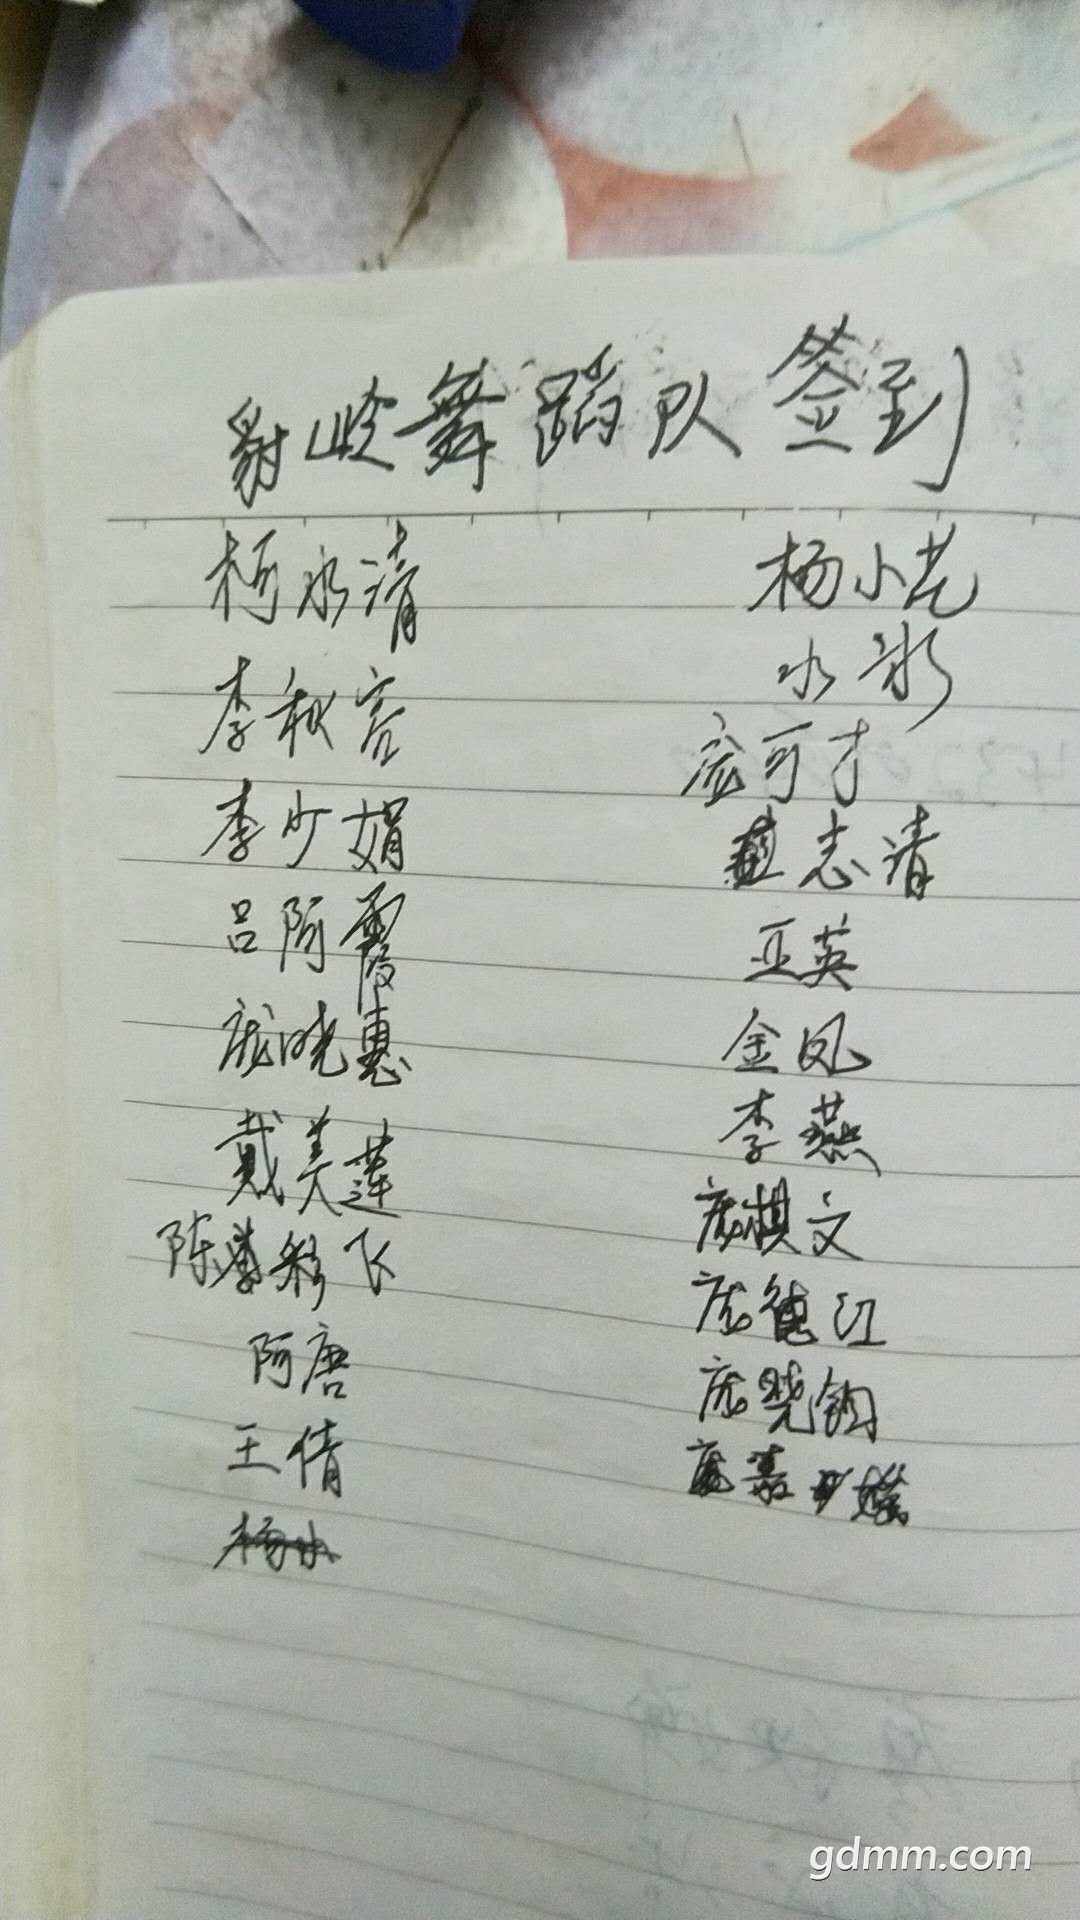 舞蹈队签到
柯水清
李秋容
李少娟
吕阿霞
庞晓惠
戴美莲
陈彩飞
阿唐
王倩
杨小艺
水冰
庞可才
志清
亚英
金凤
李燕
庞棋文
庞德江
庞晓钢
庞嘉
gdmm.com